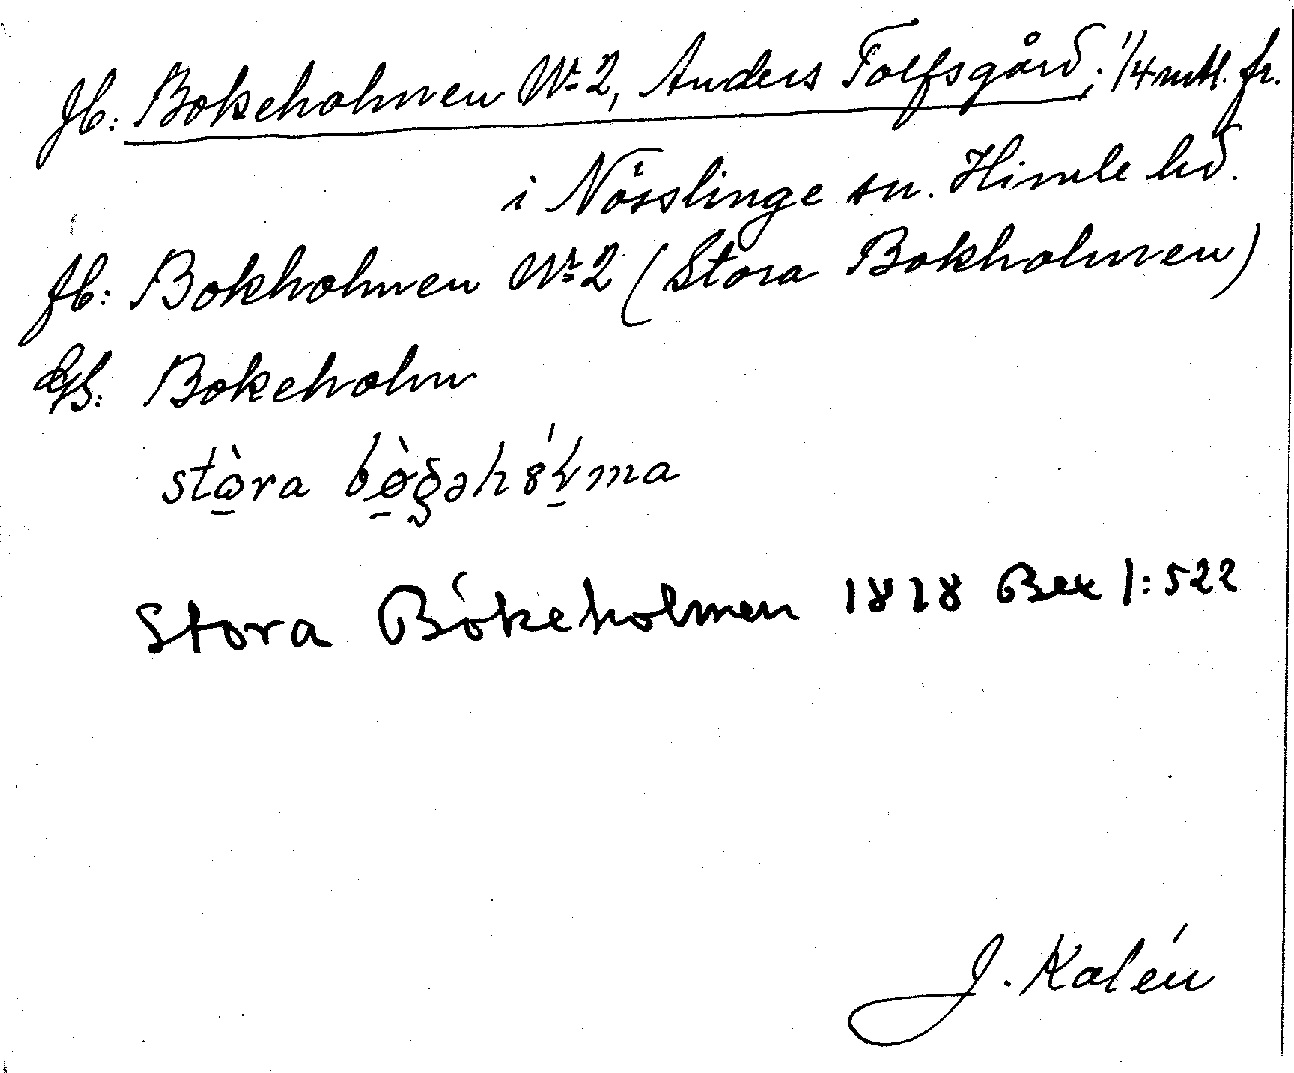 Jb: Bokeholmen No 2, Anders Tolfsgård; 1/4 mtl. fr.
i Nösslinge sn. Himle hd.
Jb: Bokholmen No 2 (Stora Bokholmen)
GS: Bokeholm
stòra bø̀gəhó̱ḷma
Stora Bökeholmen 1828 Bex 1:522
J. Kalén